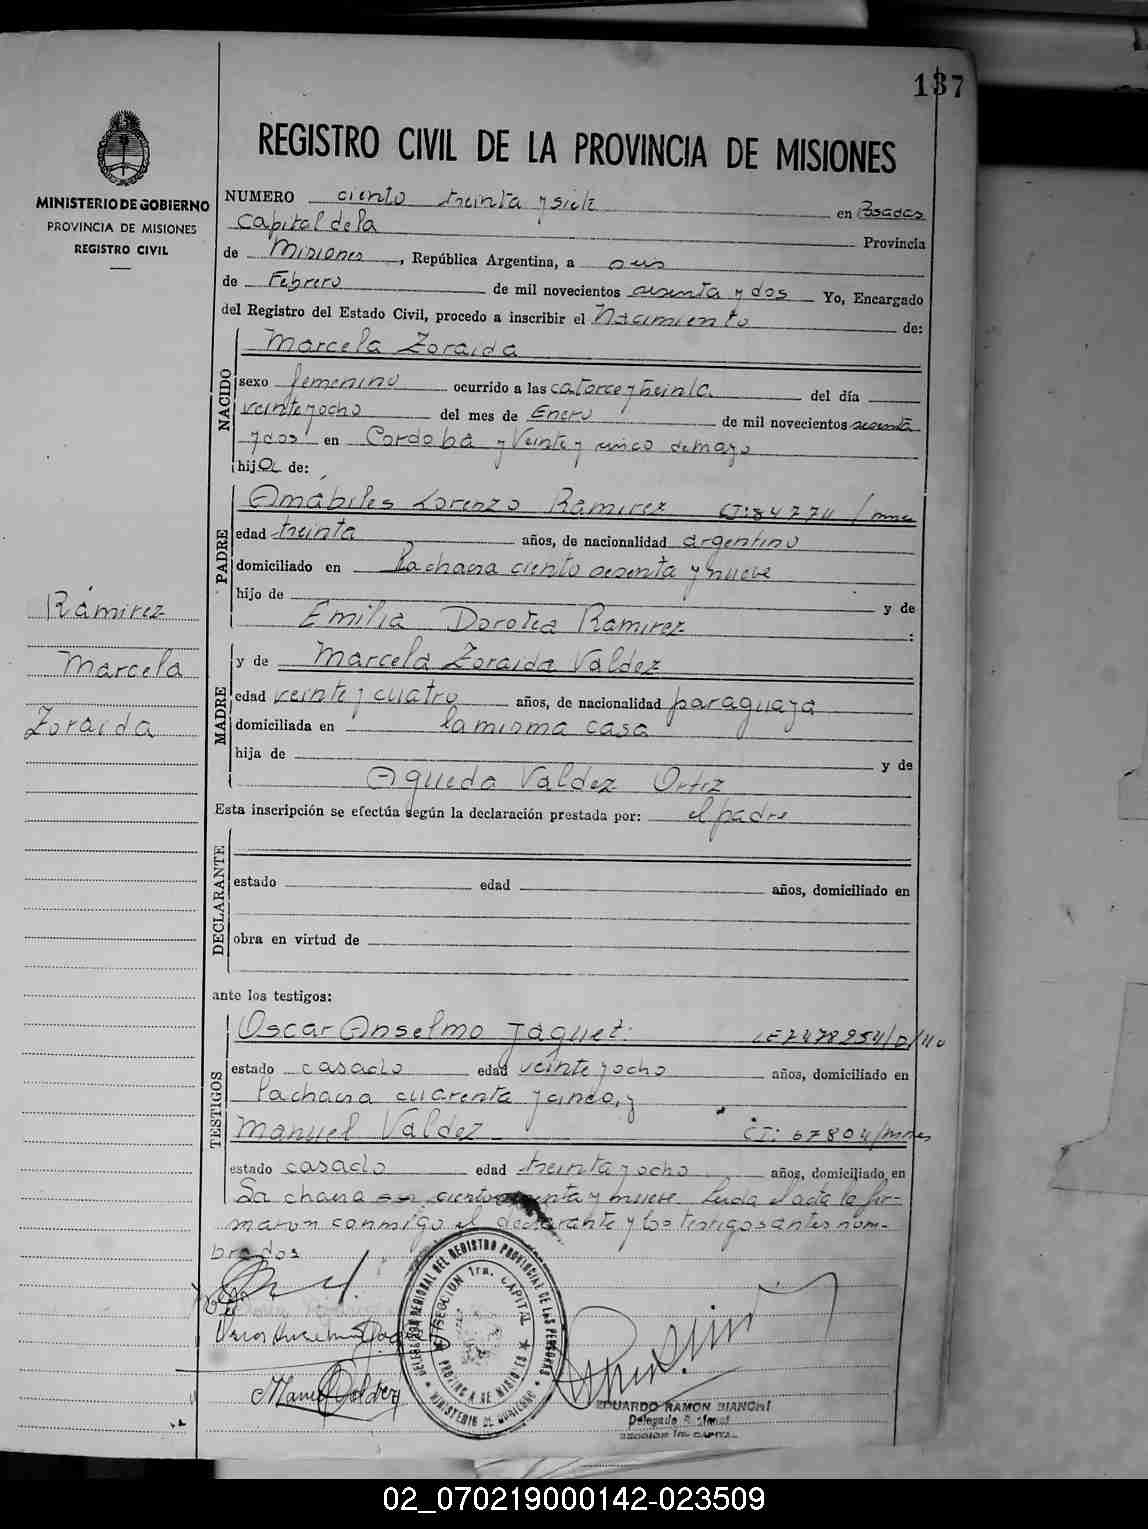 137
REGISTRO CIVIL DE LA PROVINCIA DE MISIONES
MINISTERIO DE GOBIERNO
PROVINCIA DE MISIONES
REGISTRO CIVIL
NUMERO ciento treinta y siete en Posadas
Capital de la Provincia
de Misiones, República Argentina, a seis
de Febrero de mil novecientos sesenta y dos Yo, Encargado
del Registro del Estado Civil, procedo a inscribir el Nacimiento de:
NACIDO
Marcela Zoraida
sexo femenino ocurrido a las catorce y treinta del día
veinte y ocho del mes de Enero de mil novecientos sesenta
y dos en Cordoba y Veinte y cinco de mayo
hija de:
PADRE
Amábiles Lorenzo Ramirez CI: 84774/mnes
edad treinta años, de nacionalidad argentino
domiciliado en La chacra ciento sesenta y nueve
hijo de y de
Emilia Dorotea Ramirez :
MADRE
y de Marcela Zoraida Valdez
edad veinte y cuatro años, de nacionalidad paraguaya
domiciliada en la misma casa
hija de y de
Agueda Valdez Ortiz
Ramirez
Marcela
Zoraida
Esta inscripción se efectúa según la declaración prestada por: el padre
DECLARANTE
estado edad años, domiciliado en
obra en virtud de
ante los testigos:
TESTIGOS
Oscar Anselmo Jaquet. LE 7478254/D/M
estado casado edad veinte y ocho años, domiciliado en
la chacra cuarenta y cinco, y
Manuel Valdez CI: 67804/mnes
estado casado edad treinta y ocho años, domiciliado en
La chacra ciento sesenta y nueve Leida el acta la fir-
maron conmigo el declarante y los testigos antes nom-
brados
Oscar Anselmo Jaquet
Manuel Valdez
DELEGACION REGIONAL DEL REGISTRO PROVINCIAL DE LAS PERSONAS
SECCION 1ra. CAPITAL
PROVINCIA DE MISIONES
MINISTERIO DE GOBIERNO
EDUARDO RAMON BIANCHI
Delegado
SECCION 1ra. CAPITAL
02_070219000142-023509